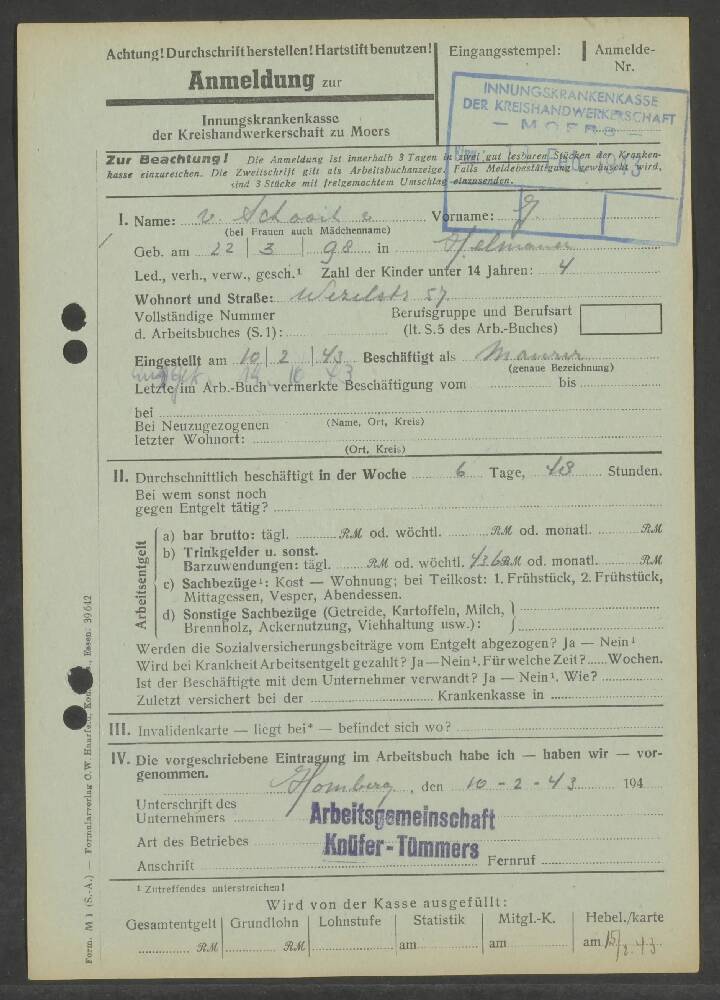 Achtung! Durchschrift herstellen! Hartstift benutzen!
Anmeldung zur
Innungskrankenkasse
der Kreishandwerkerschaft zu Moers
Eingangsstempel:
Anmelde-
Nr.
INNUNGSKRANKENKASSE
DER KREISHANDWERKERSCHAFT
— MOERS —
Zur Beachtung! Die Anmeldung ist innerhalb 3 Tagen in zwei gut lesbaren Stücken der Kranken-
kasse einzureichen. Die Zweitschrift gilt als Arbeitsbuchanzeige. Falls Meldebestätigung gewünscht wird,
sind 3 Stücke mit freigemachtem Umschlag einzusenden.
I. Name: v. Vorname: G
(bei Frauen auch Mädchenname)
Geb. am 22 3 98 in
Led., verh., verw., gesch.¹ Zahl der Kinder unter 14 Jahren: 4
Wohnort und Straße: 57
Vollständige Nummer
d. Arbeitsbuches (S. 1):
Berufsgruppe und Berufsart
(lt. S. 5 des Arb.-Buches)
Eingestellt am 10 2 43 Beschäftigt als Maurer
(genaue Bezeichnung)
14 10 43
Letzte im Arb.-Buch vermerkte Beschäftigung vom bis
bei
(Name, Ort, Kreis)
Bei Neuzugezogenen
letzter Wohnort:
(Ort, Kreis)
II. Durchschnittlich beschäftigt in der Woche 6 Tage, 48 Stunden.
Bei wem sonst noch
gegen Entgelt tätig?
Arbeitsentgelt
a) bar brutto: tägl. RM od. wöchtl. RM od. monatl. RM
b) Trinkgelder u. sonst.
Barzuwendungen: tägl. RM od. wöchtl. RM od. monatl. RM
c) Sachbezüge¹: Kost — Wohnung; bei Teilkost: 1. Frühstück, 2. Frühstück,
Mittagessen, Vesper, Abendessen.
d) Sonstige Sachbezüge (Getreide, Kartoffeln, Milch,
Brennholz, Ackernutzung, Viehhaltung usw.):
Werden die Sozialversicherungsbeiträge vom Entgelt abgezogen? Ja — Nein¹
Wird bei Krankheit Arbeitsentgelt gezahlt? Ja — Nein¹. Für welche Zeit? Wochen.
Ist der Beschäftigte mit dem Unternehmer verwandt? Ja — Nein¹. Wie?
Zuletzt versichert bei der Krankenkasse in
III. Invalidenkarte — liegt bei* — befindet sich wo?
IV. Die vorgeschriebene Eintragung im Arbeitsbuch habe ich — haben wir — vor-
genommen.
Homberg, den 10 - 2 - 43 194
Unterschrift des
Unternehmers
Arbeitsgemeinschaft
Art des Betriebes
Knüfer-Tümmers
Anschrift Fernruf
¹ Zutreffendes unterstreichen!
Wird von der Kasse ausgefüllt:
Gesamtentgelt Grundlohn Lohnstufe Statistik Mitgl.-K. Hebel./karte
RM RM am am am 15/2.43
Form. M 1 (S.-A.) — Formularverlag C. W. Haarfeld, Essen: 39642